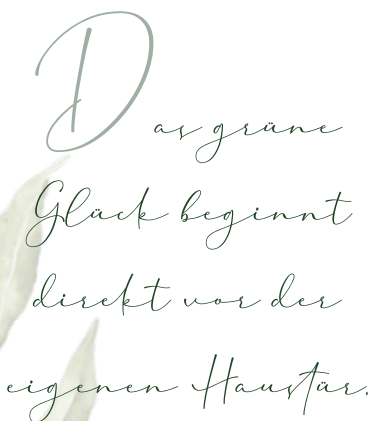 Das grüne
Glück beginnt
direkt vor der
eigenen Haustür.